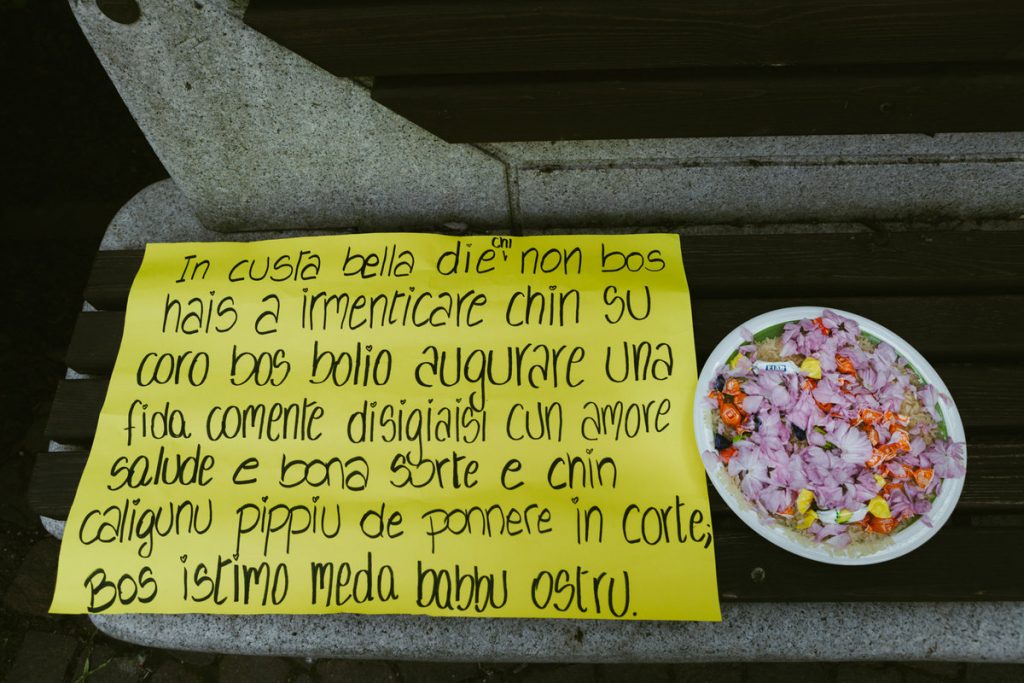 In custa bella die chi non bos
hais a irmenticare chin su
coro bos bolio augurare una
fida comente disigiaisi cun amore
salude e bona sorte e chin
caligunu pippiu de ponnere in corte;
Bos istimo meda babbu ostru.